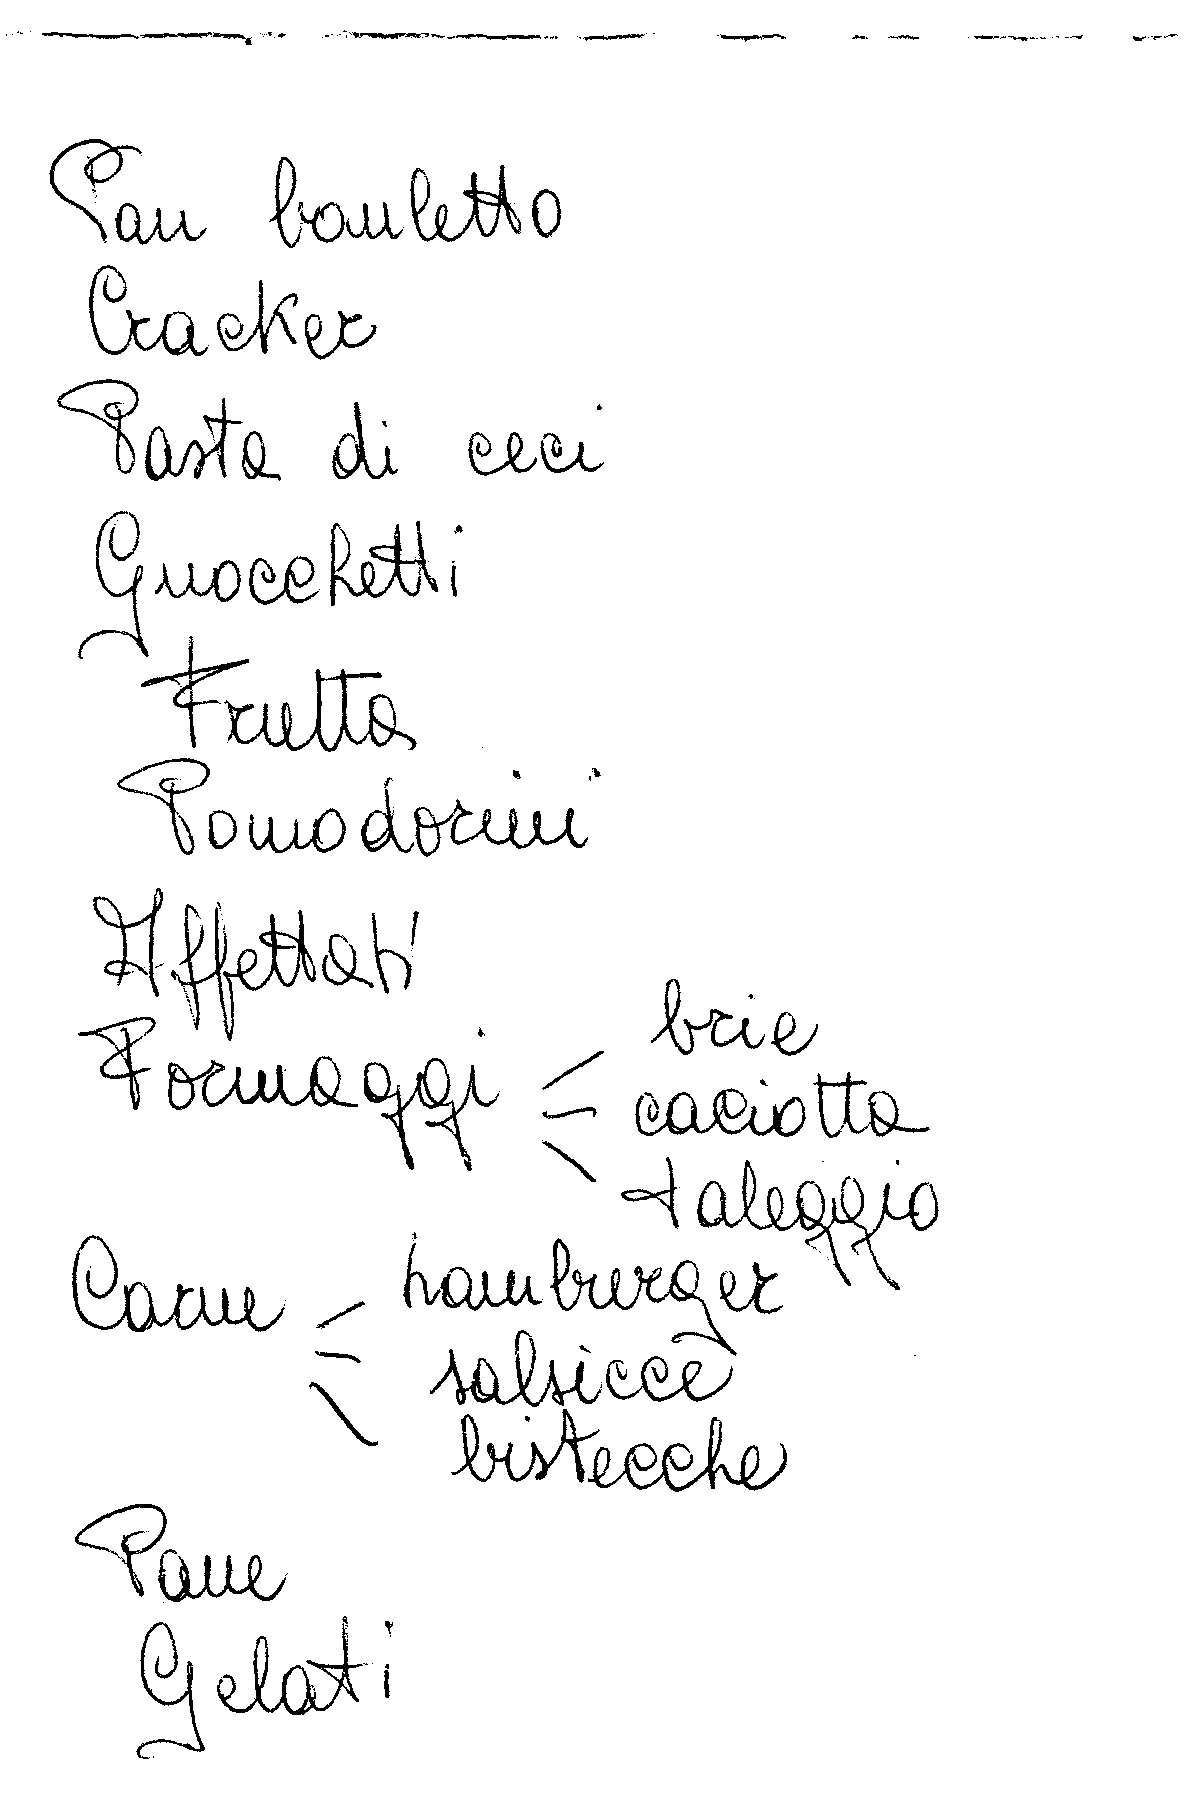 Pan bauletto
Cracker
Pasta di ceci
Gnocchetti
Frutta
Pomodorini
Affettati
Formaggi
brie
caciotta
taleggio
Carne
hamburger
salsicce
bistecche
Pane
Gelati